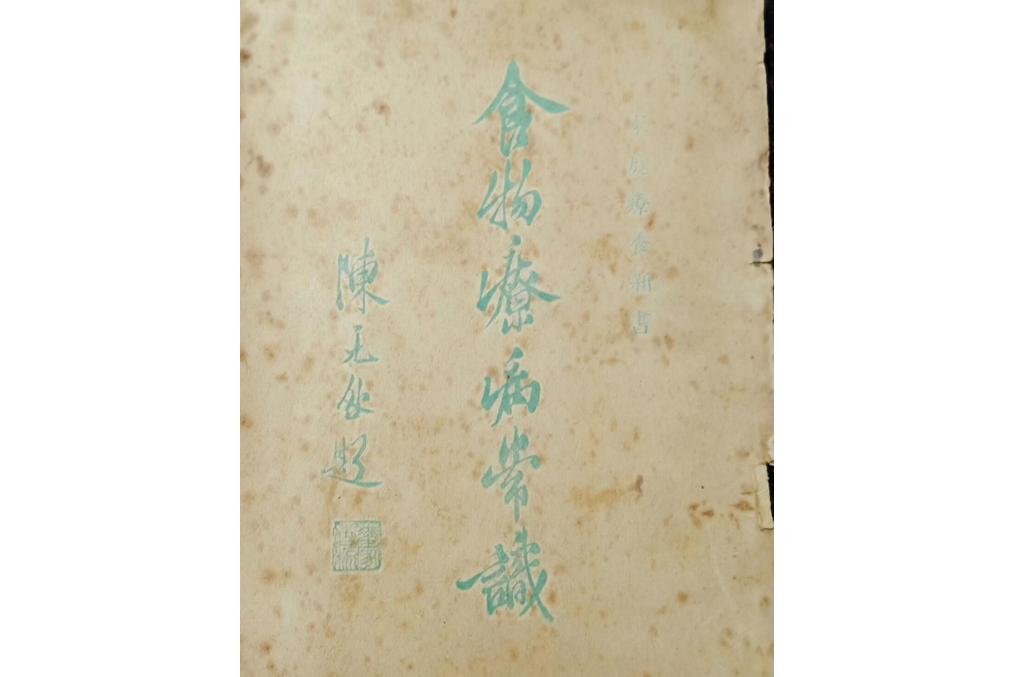 家庭療養新書
食物療病常識
陳无咎題